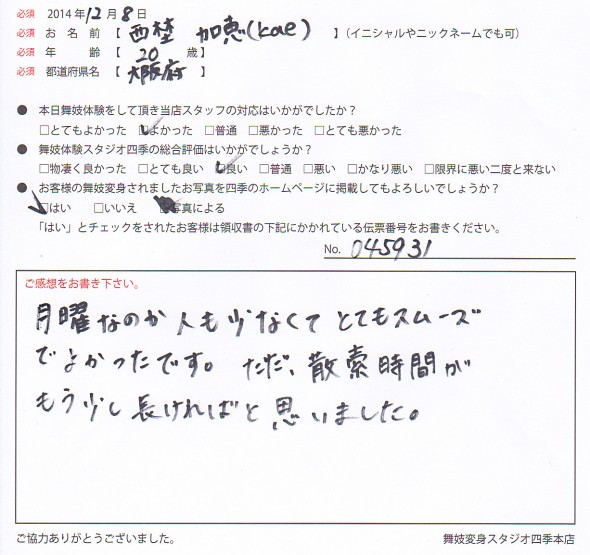 必須 2014年12月8日
必須 お名前【 西埜 加恵(kae) 】(イニシャルやニックネームでも可)
必須 年齢【 20 歳】
必須 都道府県名【 大阪府 】
● 本日舞妓体験をして頂き当店スタッフの対応はいかがでしたか？
□とてもよかった □よかった □普通 □悪かった □とても悪かった
● 舞妓体験スタジオ四季の総合評価はいかがでしょうか？
□物凄く良かった □とても良い □良い □普通 □悪い □かなり悪い □限界に悪い二度と来ない
● お客様の舞妓変身されましたお写真を四季のホームページに掲載してもよろしいでしょうか？
□はい □いいえ 写真による
「はい」とチェックをされたお客様は領収書の下記にかかれている伝票番号をお書きください。
No. 045931
ご感想をお書き下さい。
月曜なのか人も少なくてとてもスムーズ
でよかったです。ただ、散索時間が
もう少し長ければと思いました。
ご協力ありがとうございました。 舞妓変身スタジオ四季本店